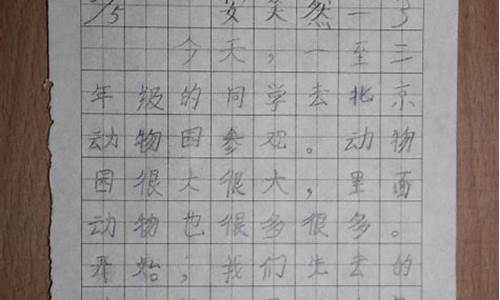 安笑然一3
今天，一至三
年级的同学去北京
动物园参观。动物
园很大很大，里面
动物也很多很多。
开始，我们先去的